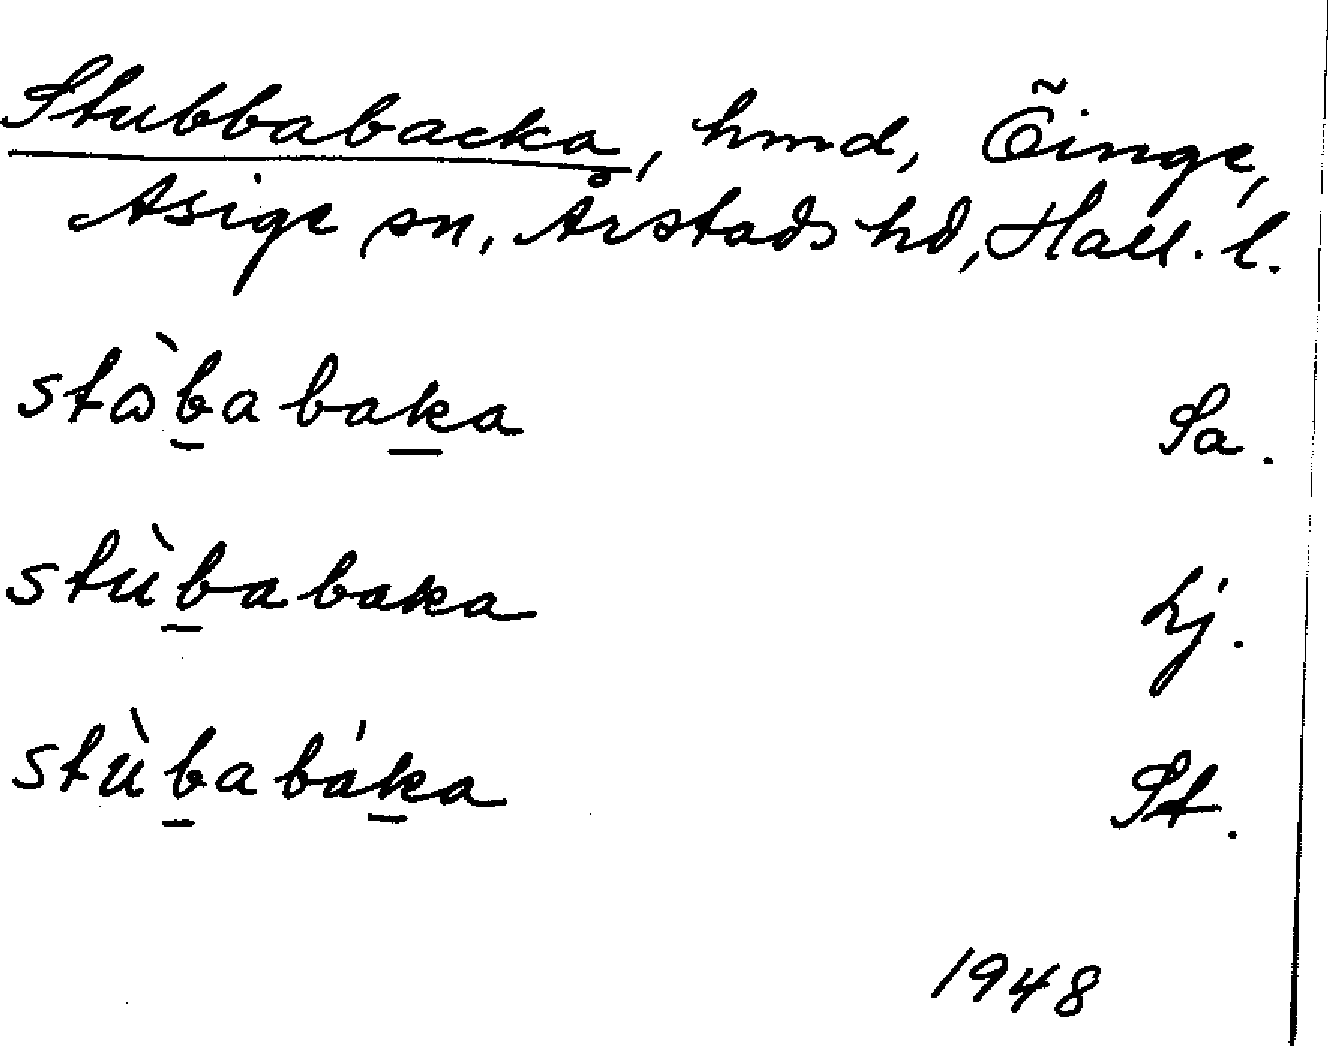 Stubbabacka, hmd, Õinge,
Asige sn, Årstads hd, Hall. l.
stɷ̀b̲a bak̲a Sa.
stùb̲a baka Lj.
stùb̲a bák̲a St.
1948